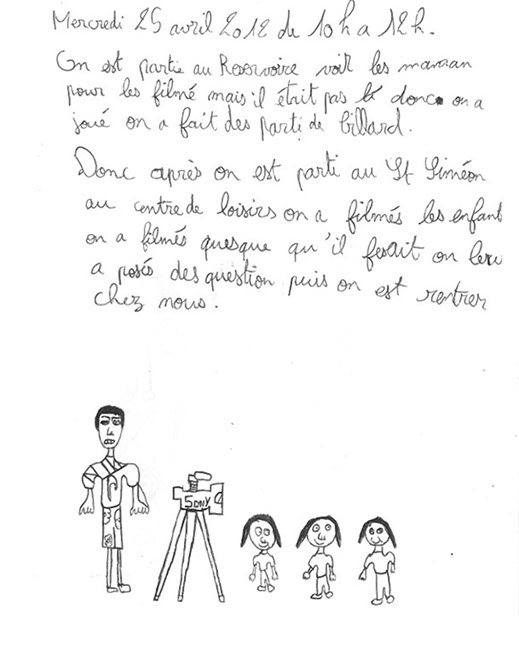 Mercredi 25 avril 2012 de 10h a 12h.
On est partie au Reservoire voir les maman
pour les filmé mais il était pas là donc on a
joué on a fait des parti de billard.
Donc après on est parti au St Siméon
au centre de loisirs on a filmés les enfant
on a filmés quesque qu'il fesait on leur
a posés des question puis on est rentrer
chez nous.
SONY